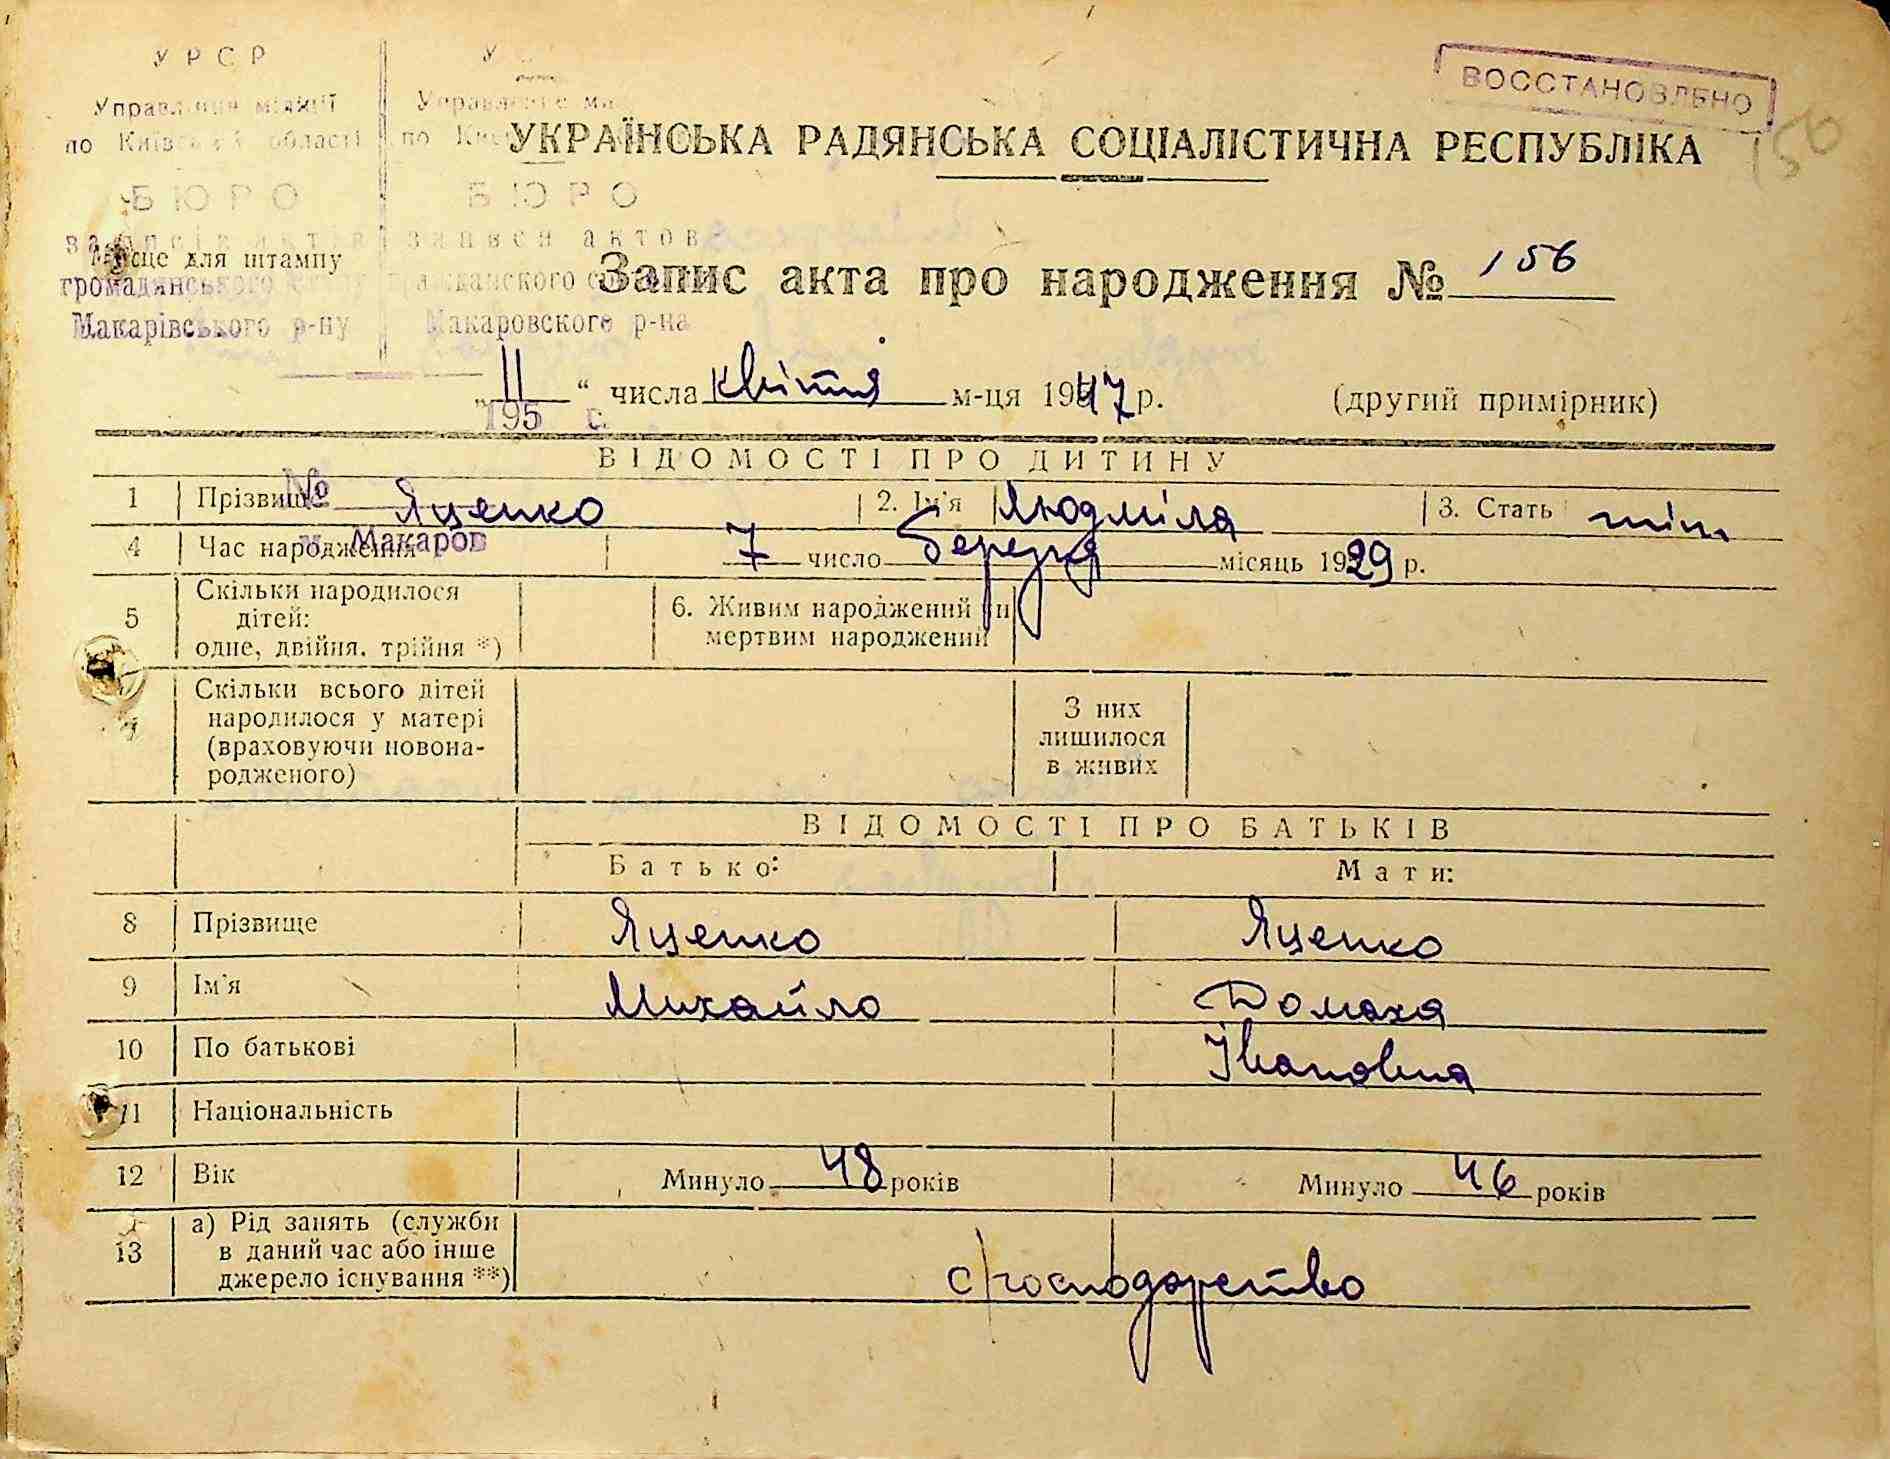 УРСР
Управління міліції
по Київській області
БЮРО
записів актів
громадянського стану
Макарівського р-ну
У
Управление ми
по Ки
БЮРО
записи актов
гражданского с
Макаровского р-на
195 г.
№
м. Макаров
ВОССТАНОВЛЕНО
150
УКРАЇНСЬКА РАДЯНСЬКА СОЦІАЛІСТИЧНА РЕСПУБЛІКА
Місце для штампу
Запис акта про народження № 156
„11“ числа квітня м-ця 1947 р. (другий примірник)
ВІДОМОСТІ ПРО ДИТИНУ
1 Прізвище Яценко 2. Ім'я Людміла 3. Стать жін
4 Час народження 7 число березня місяць 1929 р.
5 Скільки народилося дітей: одне, двійня, трійня *) 6. Живим народжений чи мертвим народжений
7 Скільки всього дітей народилося у матері (враховуючи новонародженого) З них лишилося в живих
ВІДОМОСТІ ПРО БАТЬКІВ
Батько: Мати:
8 Прізвище Яценко Яценко
9 Ім'я Михайло Домаха
10 По батькові Івановна
11 Національність
12 Вік Минуло 48 років Минуло 46 років
13 а) Рід занять (служби в даний час або інше джерело існування **) с/господарство